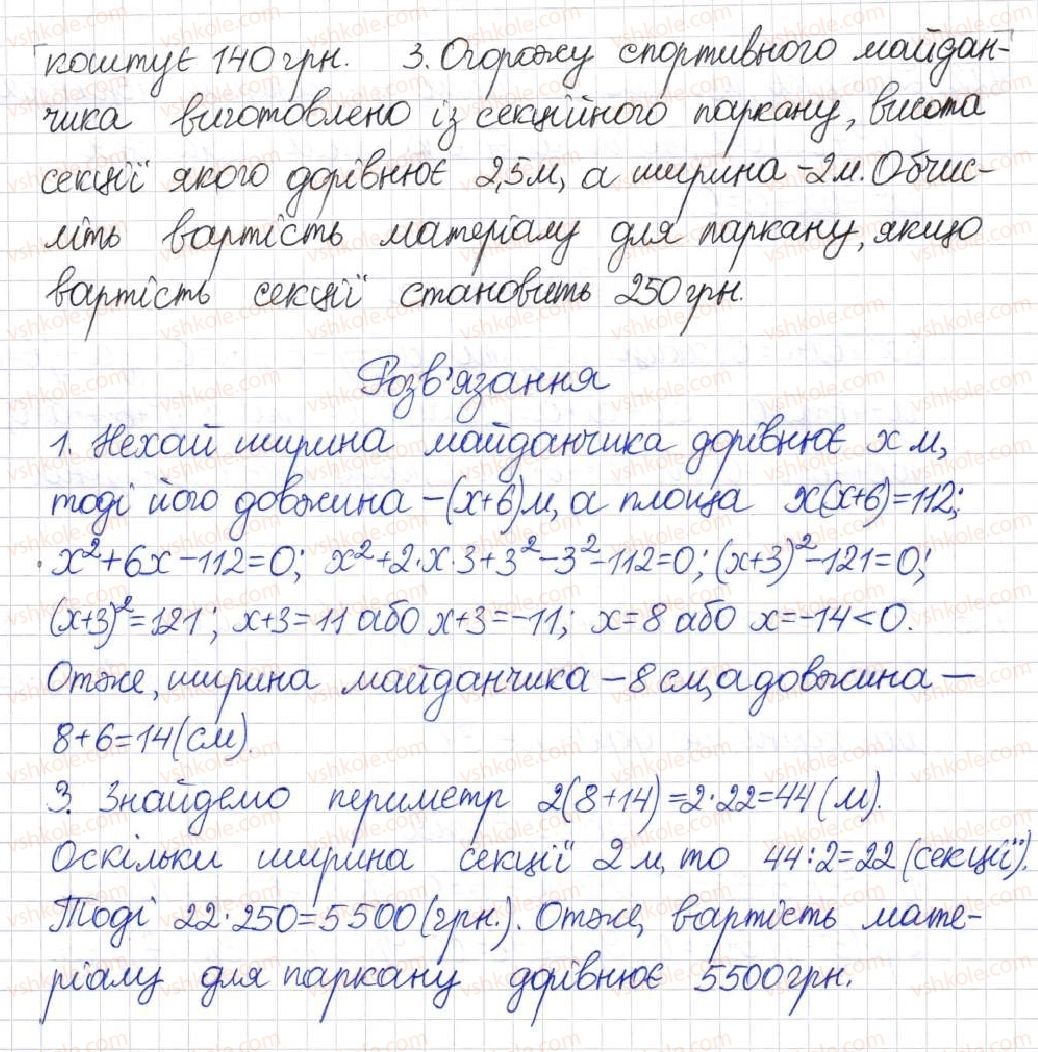 коштує 140 грн. 3. Огорожу спортивного майдан-
чика виготовлено із секційного паркану, висота
секції якого дорівнює 2,5м, а ширина -2м. Обчис-
літь вартість матеріалу для паркану, якщо
вартість секції становить 250 грн.
Розв'язання
1. Нехай ширина майданчика дорівнює x м,
тоді його довжина -(x+6)м, а площа x(x+6)=112;
x²+6x-112=0; x²+2·x·3+3²-3²-112=0; (x+3)²-121=0;
(x+3)²=121; x+3=11 або x+3=-11; x=8 або x=-14<0.
Отже, ширина майданчика - 8 см, а довжина -
8+6=14(см).
3. Знайдемо периметр 2(8+14)=2·22=44(м).
Оскільки ширина секції 2 м, то 44:2=22 (секції).
Тоді 22·250=5500(грн.). Отже, вартість мате-
ріалу для паркану дорівнює 5500грн.